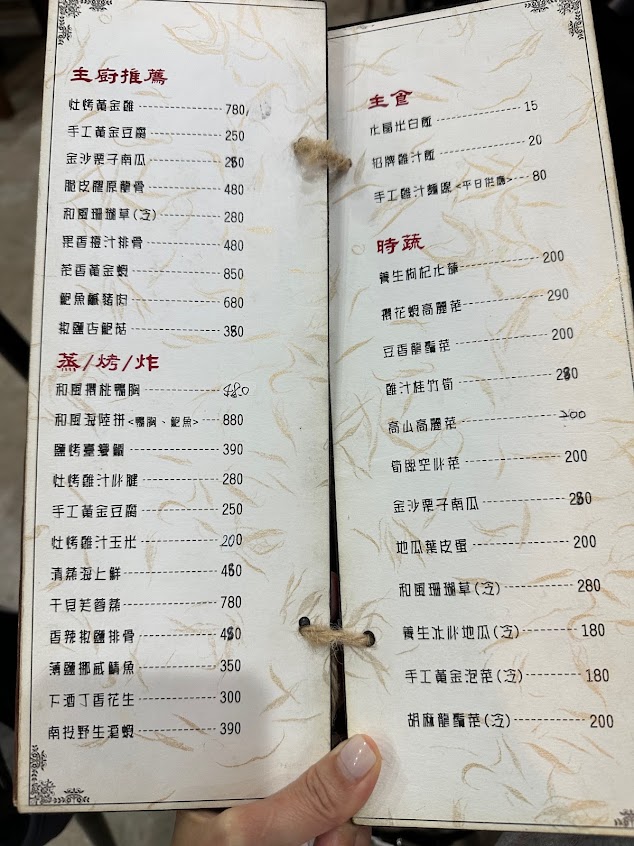 主廚推薦
灶烤黃金雞 780
手工黃金豆腐 250
金沙栗子南瓜 260
脆皮膠原龍骨 480
和風珊瑚草(冷) 280
果香橙汁排骨 480
茶香黃金蝦 850
鮑魚鹹豬肉 680
椒鹽杏鮑菇 380
蒸/烤/炸
和風櫻桃鴨胸 480
和風海陸拼<鴨胸、鮑魚> 880
鹽烤臺灣鯛 390
灶烤雞汁米腱 280
手工黃金豆腐 250
灶烤雞汁玉米 200
清蒸海上鮮
干貝芙蓉蒸 780
香辣椒鹽排骨
薄鹽挪威鯖魚 350
下酒丁香花生 300
南投野生溪蝦 390
主食
水晶米白飯 15
招牌雞汁飯 20
手工雞汁麵線<平日供應> 80
時蔬
養生枸杞水蓮 200
櫻花蝦高麗菜 290
豆香龍鬚菜 200
雞汁桂竹筍 280
高山高麗菜 200
筍絲空心菜 200
金沙栗子南瓜 260
地瓜葉皮蛋 200
和風珊瑚草(冷) 280
養生冰心地瓜(冷) 180
手工黃金泡菜(冷) 180
胡麻龍鬚菜(冷) 200